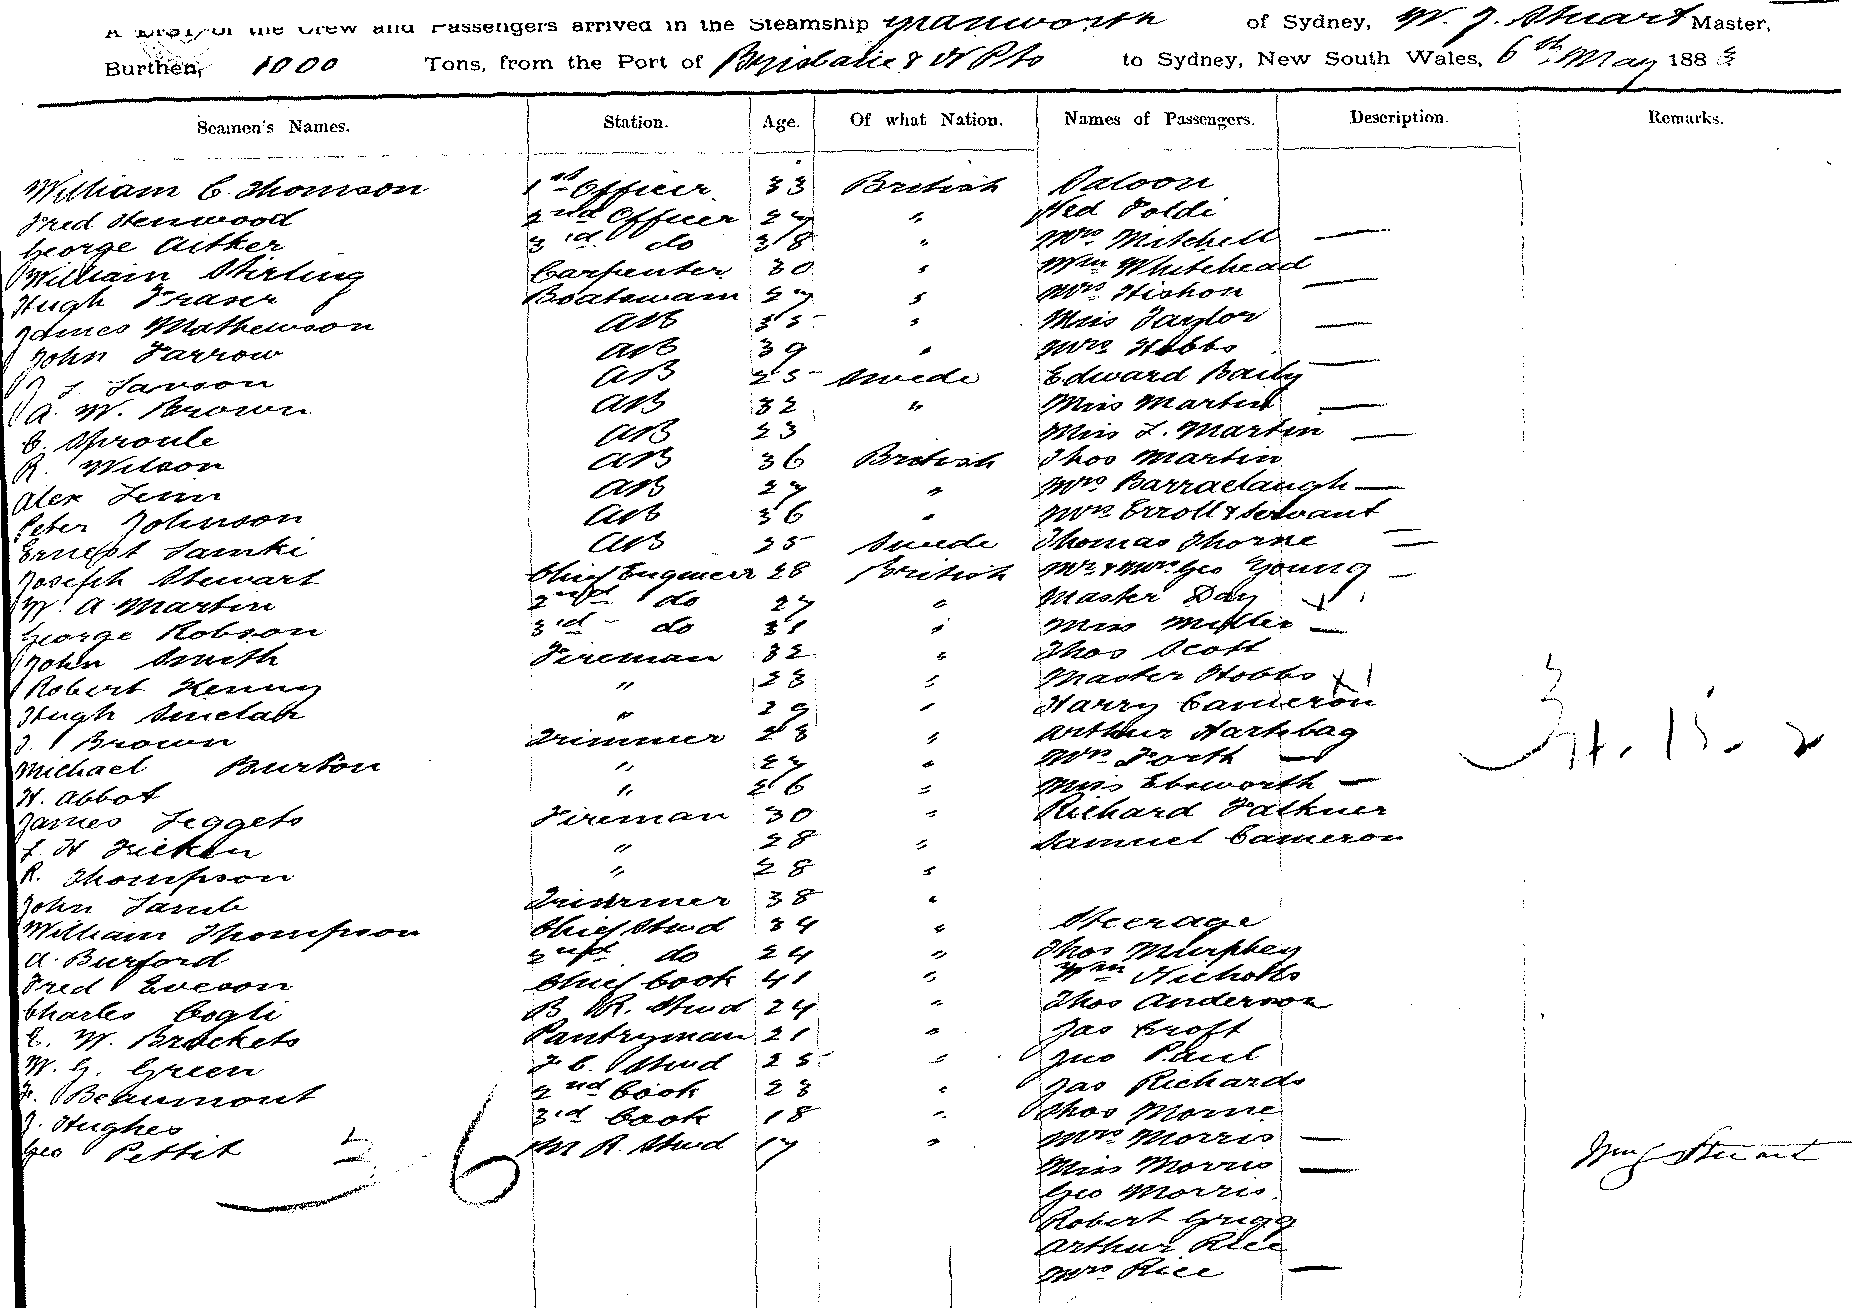 A List of the Crew and Passengers arrived in the Steamship Yranworth of Sydney, W. J. Stuart Master,
Burthen, 1000 Tons, from the Port of Brisbane & N Pts to Sydney, New South Wales, 6th May 188
Seamen's Names. Station. Age. Of what Nation. Names of Passengers. Description. Remarks.
William C. Thomson 1st Officer 33 British Saloon
Fred Henwood 2nd Officer 27 " Ned Foldi
George Aitker 3rd do 38 " Mrs Mitchell —
William Stirling Carpenter 30 " Wm Whitehead
Hugh Fraser Boatswain 27 " Mrs Hishon —
James Mathewson AB 35 " Miss Taylor —
John Farrow AB 39 " Mrs Hobbs
J L Lawson AB 25 Swede Edward Baily —
A. W. Brown AB 32 " Miss Martin —
C. Sproule AB 23 Miss L. Martin —
R. Wilson AB 36 British Thos Martin
Alex Linn AB 27 " Mrs Barraclaugh —
Peter Johnson AB 36 " Mrs Erroll & Servant —
Ernest Lamki AB 25 Swede Thomas Thorne —
Joseph Stewart Chief Engineer 28 British Mr & Mrs Geo Young —
W. A. Martin 2nd do 27 " Master Day
George Robson 3rd do 31 " Miss Miller —
John Smith Fireman 32 " Thos Scott
Robert Kenny " 23 " Master Hobbs
Hugh Sinclair " 29 " Harry Cameron
J. Brown Trimmer 23 " Arthur Hartbag
Michael Burton " 27 " Mrs Forth —
H. Abbot " 26 " Miss Ebsworth —
James Leggets Fireman 30 " Richard Falkner
L H Fricken " 28 " Samuel Cameron
R. Thompson " 28 "
John Lamb Trimmer 38 "
William Thompson Chief Stwd 34 " Steerage
A. Burford 2nd do 24 " Thos Murphey
Fred Eveson Chief Cook 41 " Wm Nicholls
Charles Cogli B. R. Stwd 24 " Thos Anderson
E. W. Brockets Pantryman 21 " Jas Croft
W. G. Green F. C. Stwd 25 " Jno Paul
F. Beaumont 2nd Cook 23 " Jas Richards
J. Hughes 3rd Cook 18 " Thos Morne
Geo Pettit M R. Stwd 17 " Mrs Morris —
Miss Morris —
Geo Morris
Robert Grigg
Arthur Rice
Mrs Rice —
6
Stuart